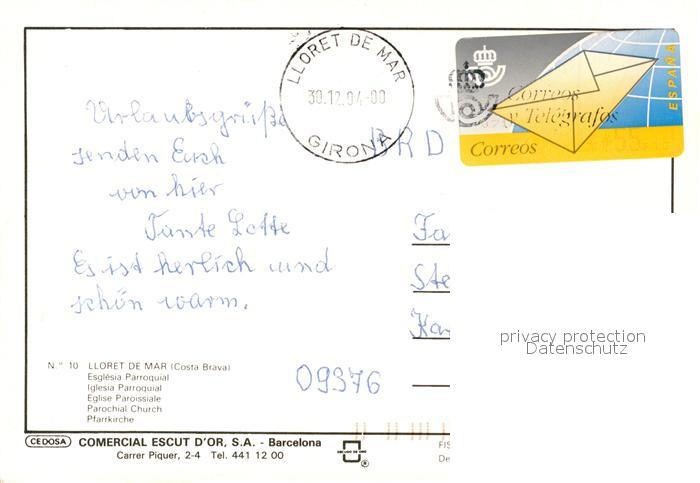 LLORET DE MAR
30.12.94-00
GIRONA
Correos
y Telégrafos
Correos
ESPAÑA
Urlaubsgrüße
BRD
senden Euch
von hier
Tante Lotte
Es ist herlich und
schön warm.
Fa
Ste
Ka
09376
privacy protection
Datenschutz
N.º 10 LLORET DE MAR (Costa Brava)
Església Parroquial
Iglesia Parroquial
Eglise Paroissiale
Parochial Church
Pfarrkirche
CEDOSA COMERCIAL ESCUT D'OR, S.A. - Barcelona
Carrer Piquer, 2-4 Tel. 441 12 00
FIS
De